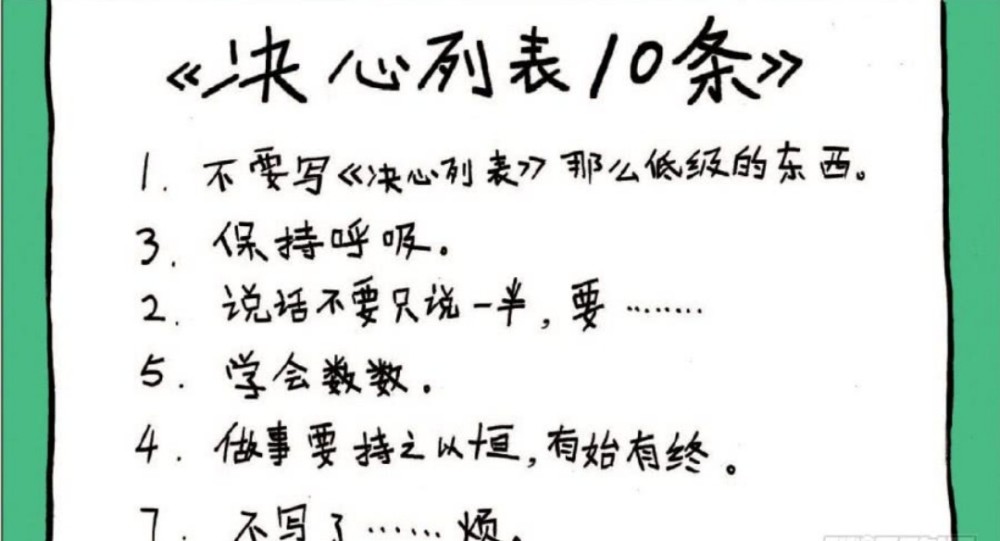 《决心列表10条》
1. 不要写《决心列表》那么低级的东西。
3. 保持呼吸。
2. 说话不要只说一半,要……
5. 学会数数。
4. 做事要持之以恒,有始有终。
7. 不写了……烦。